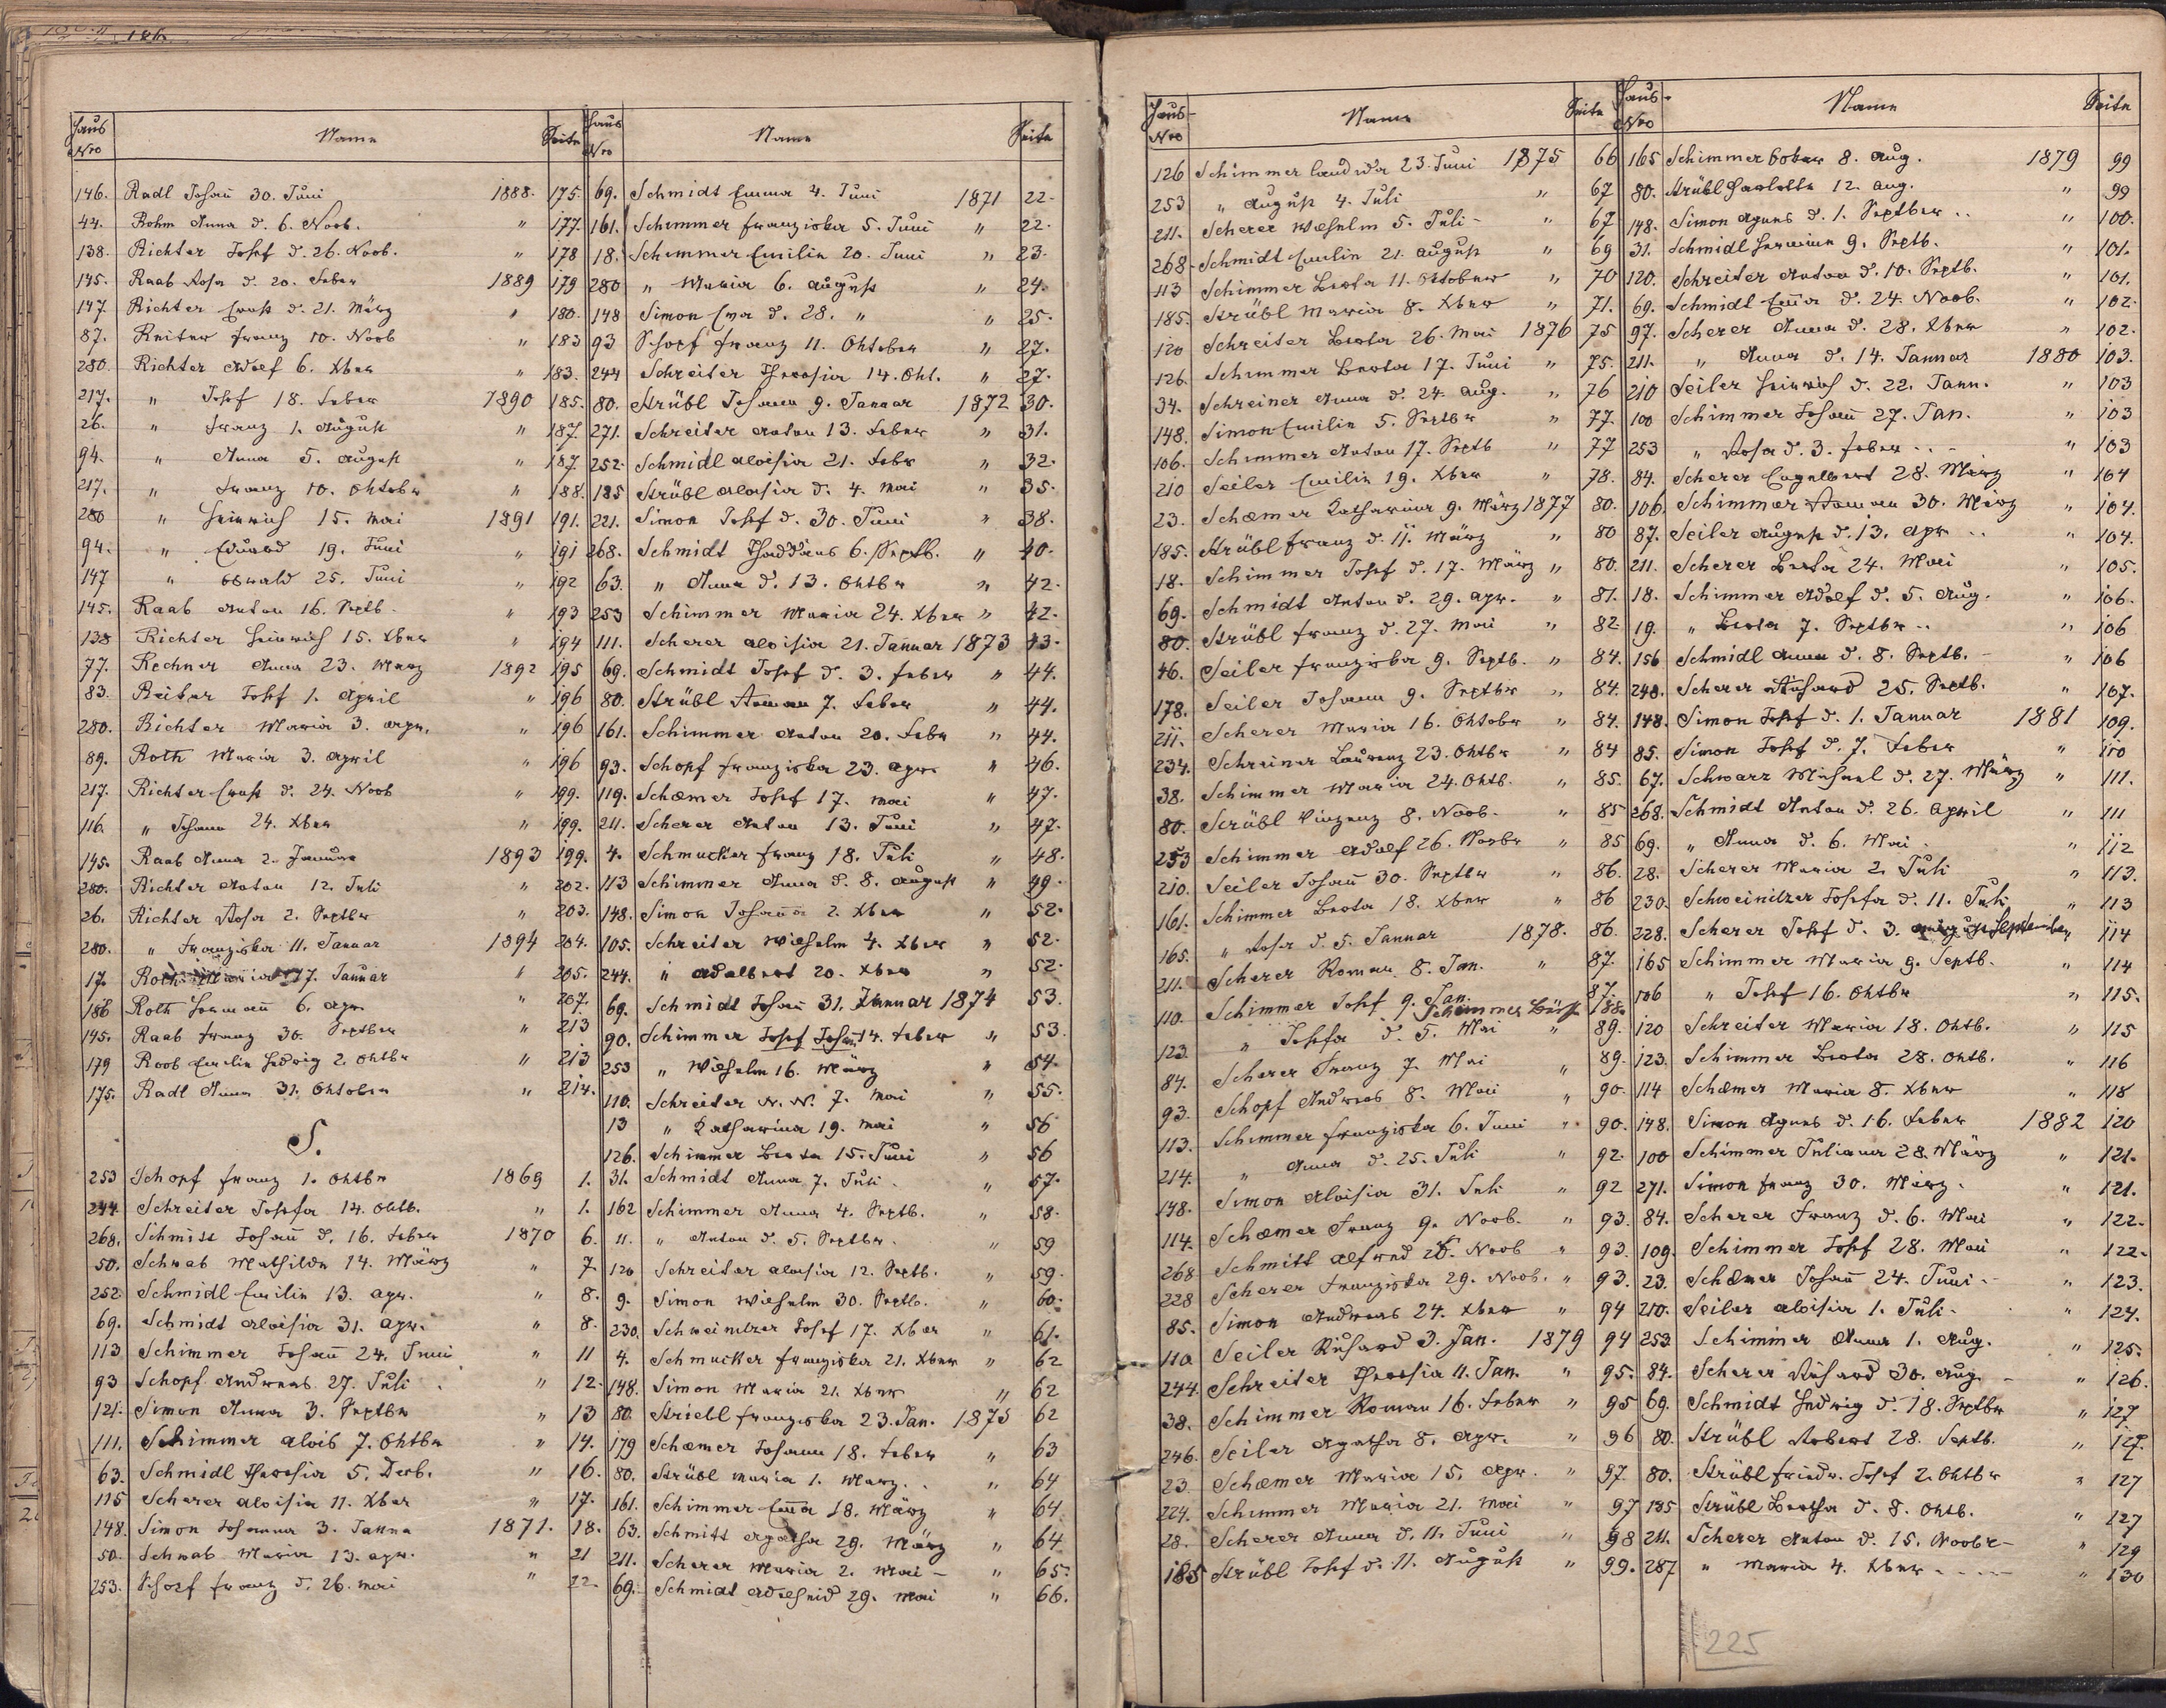 Haus Nro Name Seite
146. Radl Johan̅ 30. Juni 1888. 175.
44. Bohm Anna d. 6. Novb. " 177.
138. Richter Josef d. 26. Novb. " 178
145. Raab Rosa d. 20. Feber 1889 179
147. Richter Ernst d. 21. März " 180.
87. Reiter Franz 10. Novb " 183
280. Richter Adolf 6. Xber " 183.
217. " Josef 18. Feber 1890 185.
26. " Franz 1. August " 187.
94. " Anna 5. August " 187.
217. " Franz 10. Oktober " 188.
280 " Heinrich 15. Mai 1891 191.
94. " Eduard 19. Juni " 191
147 " Oswald 25. Juni " 192
145. Raab Anton 16. Septb. " 193
138 Richter Heinrich 15. Xber " 194
77. Rechner Anna 23. März 1892 195
83. Reiter Josef 1. April " 196
280. Richter Maria 3. Apr. " 196
89. Roth Maria 3. April " 196
217. Richter Ernst d. 24. Novb " 199.
116. " Johann 24. Xber " 199.
145. Raab Anna 2. Januar 1893 199.
280. Richter Anton 12. Juli " 202.
26. Richter Rosa 2. Septbr " 203.
280. " Franziska 11. Januar 1894 204.
17. Roth Maria 17. Januar " 205.
186 Roth Herman̅ 6. Apr. " 207.
145. Raab Franz 30. Septber " 213
179 Roob Emilie Hedwig 2. Oktbr " 213
175. Radl Anna 31. Oktober " 214.
S.
253 Schopf Franz 1. Oktbr 1869 1.
244. Schreiter Josefa 14. Oktb. " 1.
268. Schmitt Johan̅ d. 16. Feber 1870 6.
50. Schwab Mathilde 14. März " 7
252 Schmidl Emilie 13. Apr. " 8.
69. Schmidt Aloisia 31. Apr. " 8.
113 Schimmer Johan̅ 24. Juni " 11
93 Schopf Andreas 27. Juli " 12.
121. Simon Anna 3. Septbr " 13
111. Schimmer Alois 7. Oktbr " 14.
63. Schmidl Theresia 5. Dezb. " 16.
115 Scherer Aloisia 11. Xber " 17.
148. Simon Johanna 3. Janna 1871. 18.
50. Schwab Maria 13. Apr. " 21
253. Schopf Franz d. 26. Mai " 22.
Haus Nro Name Seite
69. Schmidt Emma 4. Juni 1871 22.
161. Schimmer Franziska 5. Juni " 22.
18. Schimmer Emilie 20. Juni " 23.
280 " Maria 6. August " 24.
148 Simon Ema d. 28. " " 25.
93 Schopf Franz 11. Oktober " 27.
244 Schreiter Theresia 14. Okt. " 27.
80. Strübl Johann 9. Januar 1872 30.
271. Schreiter Anton 13. Feber " 31.
252. Schmidl Aloisia 21. Febr " 32.
185 Strübl Aloisia d. 4. Mai " 35.
221. Simon Josef d. 30. Juni " 38.
268. Schmidt Thaddäus 6. Septb. " 40.
63. " Anna d. 13. Oktbr " 42.
253 Schimmer Maria 24. Xber " 42.
111. Scherer Aloisia 21. Januar 1873 43.
69. Schmidt Josef d. 3. Feber " 44.
80. Strübl Roman 7. Feber " 44.
161. Schimmer Anton 20. Febr " 44.
93. Schopf Franziska 23. Apr. " 46.
119. Schæmer Josef 17. Mai " 47.
211. Scherer Anton 13. Juni " 47.
4. Schmucker Franz 18. Juli " 48.
113 Schimmer Anna d. 8. August " 49.
148. Simon Johan̅a 2. Xber " 52.
105. Schreiter Wilhelm 4. Xber " 52.
244. " Adalbert 20. Xber " 52.
69. Schmidt Johan̅ 31. Januar 1874 53.
90. Schimmer Josef Johan̅ 14. Feber " 53.
253 " Wilhelm 16. März " 54.
110. Schreiter N. N. 7. Mai " 55.
13 " Katharina 19. Mai " 56
126. Schimmer Berta 15. Juni " 56
31. Schmidt Anna 7. Juli " 57.
162 Schimmer Anna 4. Septb. " 58.
11. " Anton d. 5. Septbr. " 59
120 Schreiter Aloisia 12. Septb. " 59.
9. Simon Wilhelm 30. Septb. " 60.
230. Schweinitzer Josef 17. Xber " 61.
4. Schmucker Franziska 21. Xber " 62
148. Simon Maria 21. Xber " 62
80. Striebl Franziska 23. Jan. 1875 62
179 Schæmer Johann 18. Feber " 63
80. Strübl Maria 1. März. " 64
161. Schimmer Em̅a 18. März " 64
63. Schmitt Agatha 29. März " 64
211. Scherer Maria 2. Mai " 65.
69. Schmidt Adelheid 29. Mai " 66.
Haus-Nro Name Seite
126 Schimmer 23. Juni 1875 66
253 " August 4. Juli " 67
211. Scherer Wilhelm 5. Juli " 67
268. Schmidt Emilie 21. August " 69
113 Schimmer Berta 11. Oktober " 70
185. Strübl Maria 8. Xber " 71.
120 Schreiter Berta 26. Mai 1876 75
126. Schimmer Berta 17. Juni " 75.
34. Schreiner Anna d. 24. Aug. " 76
148. Simon Emilie 5. Septbr " 77.
106. Schimmer Anton 17. Septb " 77
210 Seiler Emilie 19. Xber " 78.
23. Schæmer Katharina 9. März 1877 80.
185. Strübl Franz d. 11. März " 80
18. Schimmer Josef d. 17. März " 80.
69. Schmidt Anton d. 29. Apr. " 81.
80. Strübl Franz d. 27. Mai " 82
46. Seiler Franziska 9. Septb. " 84.
178. Seiler Johann 9. Septbr " 84.
211. Scherer Maria 16. Oktober " 84.
234. Schreiner Laurenz 23. Oktbr " 84
38. Schimmer Maria 24. Oktb. " 85.
80. Strübl Vinzenz 8. Novb. " 85
253 Schimmer Adolf 26. Novbr " 85
210. Seiler Johan̅ 30. Septbr " 86.
161. Schimmer Berta 18. Xber " 86
165. " Rosa d. 5. Januar 1878. 86.
211. Scherer Roman 8. Jan. " 87.
110. Schimmer Josef 9. Jan. 87.
Schimmer 188
123. " Josefa d. 5. Mai " 89.
84. Scherer Franz 7. Mai " 89.
93. Schopf Andreas 8. Mai " 90.
113. Schimmer Franziska 6. Juni " 90.
214. " Anna d. 25. Juli " 92.
148. Simon Aloisia 31. Juli " 92
114. Schæmer Franz 9. Novb. " 93.
268 Schmitt Alfred 26. Novb " 93.
228 Scherer Franziska 29. Novb. " 93.
85. Simon Andreas 24. Xber " 94
110 Seiler Richard 3. Jan. 1879 94
244. Schreiter Theresia 11. Jan. " 95.
38. Schimmer Roman 16. Feber " 95
246. Seiler Agatha 8. Apr. " 96
23. Schæmer Maria 15. Apr. " 97
224. Schimmer Maria 21. Mai " 97
28. Scherer Anna d. 11. Juni " 98
185 Strübl Josef d. 11. August " 99.
Haus-Nro Name Seite
165 Schimmer 8. Aug. 1879 99
80. Strübl Harlotte 12. Aug. " 99
148. Simon Agnes d. 1. Septber " 100.
31. Schmidl Hermine 9. Septb. " 101.
120. Schreiter Anton d. 10. Septb. " 101.
69. Schmidt Em̅a d. 24. Novb. " 102.
97. Scherer Anna d. 28. Xber " 102.
211. " Anna d. 14. Januar 1880 103.
210 Seiler Heinrich d. 22. Jann. " 103
100 Schimmer Johan̅ 27. Jan. " 103
253 " Rosa d. 3. Feber " 103
84. Scherer Engelbert 28. März " 104
106. Schimmer Roman 30. März " 104.
87. Seiler August d. 13. Apr " 104.
211. Scherer Berta 24. Mai " 105.
18. Schimmer Adolf d. 5. Aug. " 106.
19. " Berta 7. Septbr " 106
156 Schmidl Anna d. 8. Septb. " 106
248. Scherer Richard 25. Septb. " 107.
148. Simon Josef d. 1. Januar 1881 109.
85. Simon Josef d. 7. Feber " 110
67. Schwarz Michael d. 27. März " 111.
268. Schmidt Anton d. 26. April " 111
69. " Anna d. 6. Mai " 112
28. Scherer Maria 2. Juli " 113.
230. Schweinitzer Josefa d. 11. Juli " 113
228. Scherer Josef d. 3. September " 114
165 Schimmer Maria 9. Septb. " 114
106 " Josef 16. Oktbr " 115.
120 Schreiter Maria 18. Oktb. " 115
123. Schimmer Berta 28. Oktb. " 116
114 Schæmer Maria 8. Xber " 118
148. Simon Agnes d. 16. Feber 1882 120
100 Schimmer Juliana 28. März " 121.
271. Simon Franz 30. März. " 121.
84. Scherer Franz d. 6. Mai " 122.
109. Schimmer Josef 28. Mai " 122.
23. Schæmer Johan̅ 24. Juni " 123.
210. Seiler Aloisia 1. Juli. " 124.
253. Schimmer Anna 1. Aug. " 125.
84. Scherer Richard 30. Aug. " 126.
69. Schmidt Hedwig d. 18. Septbr " 127
80. Strübl Robert 28. Septb. " 127.
80. Strübl Friedr. Josef 2. Oktbr " 127
185 Strübl Bertha d. 8. Oktb. " 127
211. Scherer Anton d. 15. Novbr " 129
287 " Maria 4. Xber " 130
225